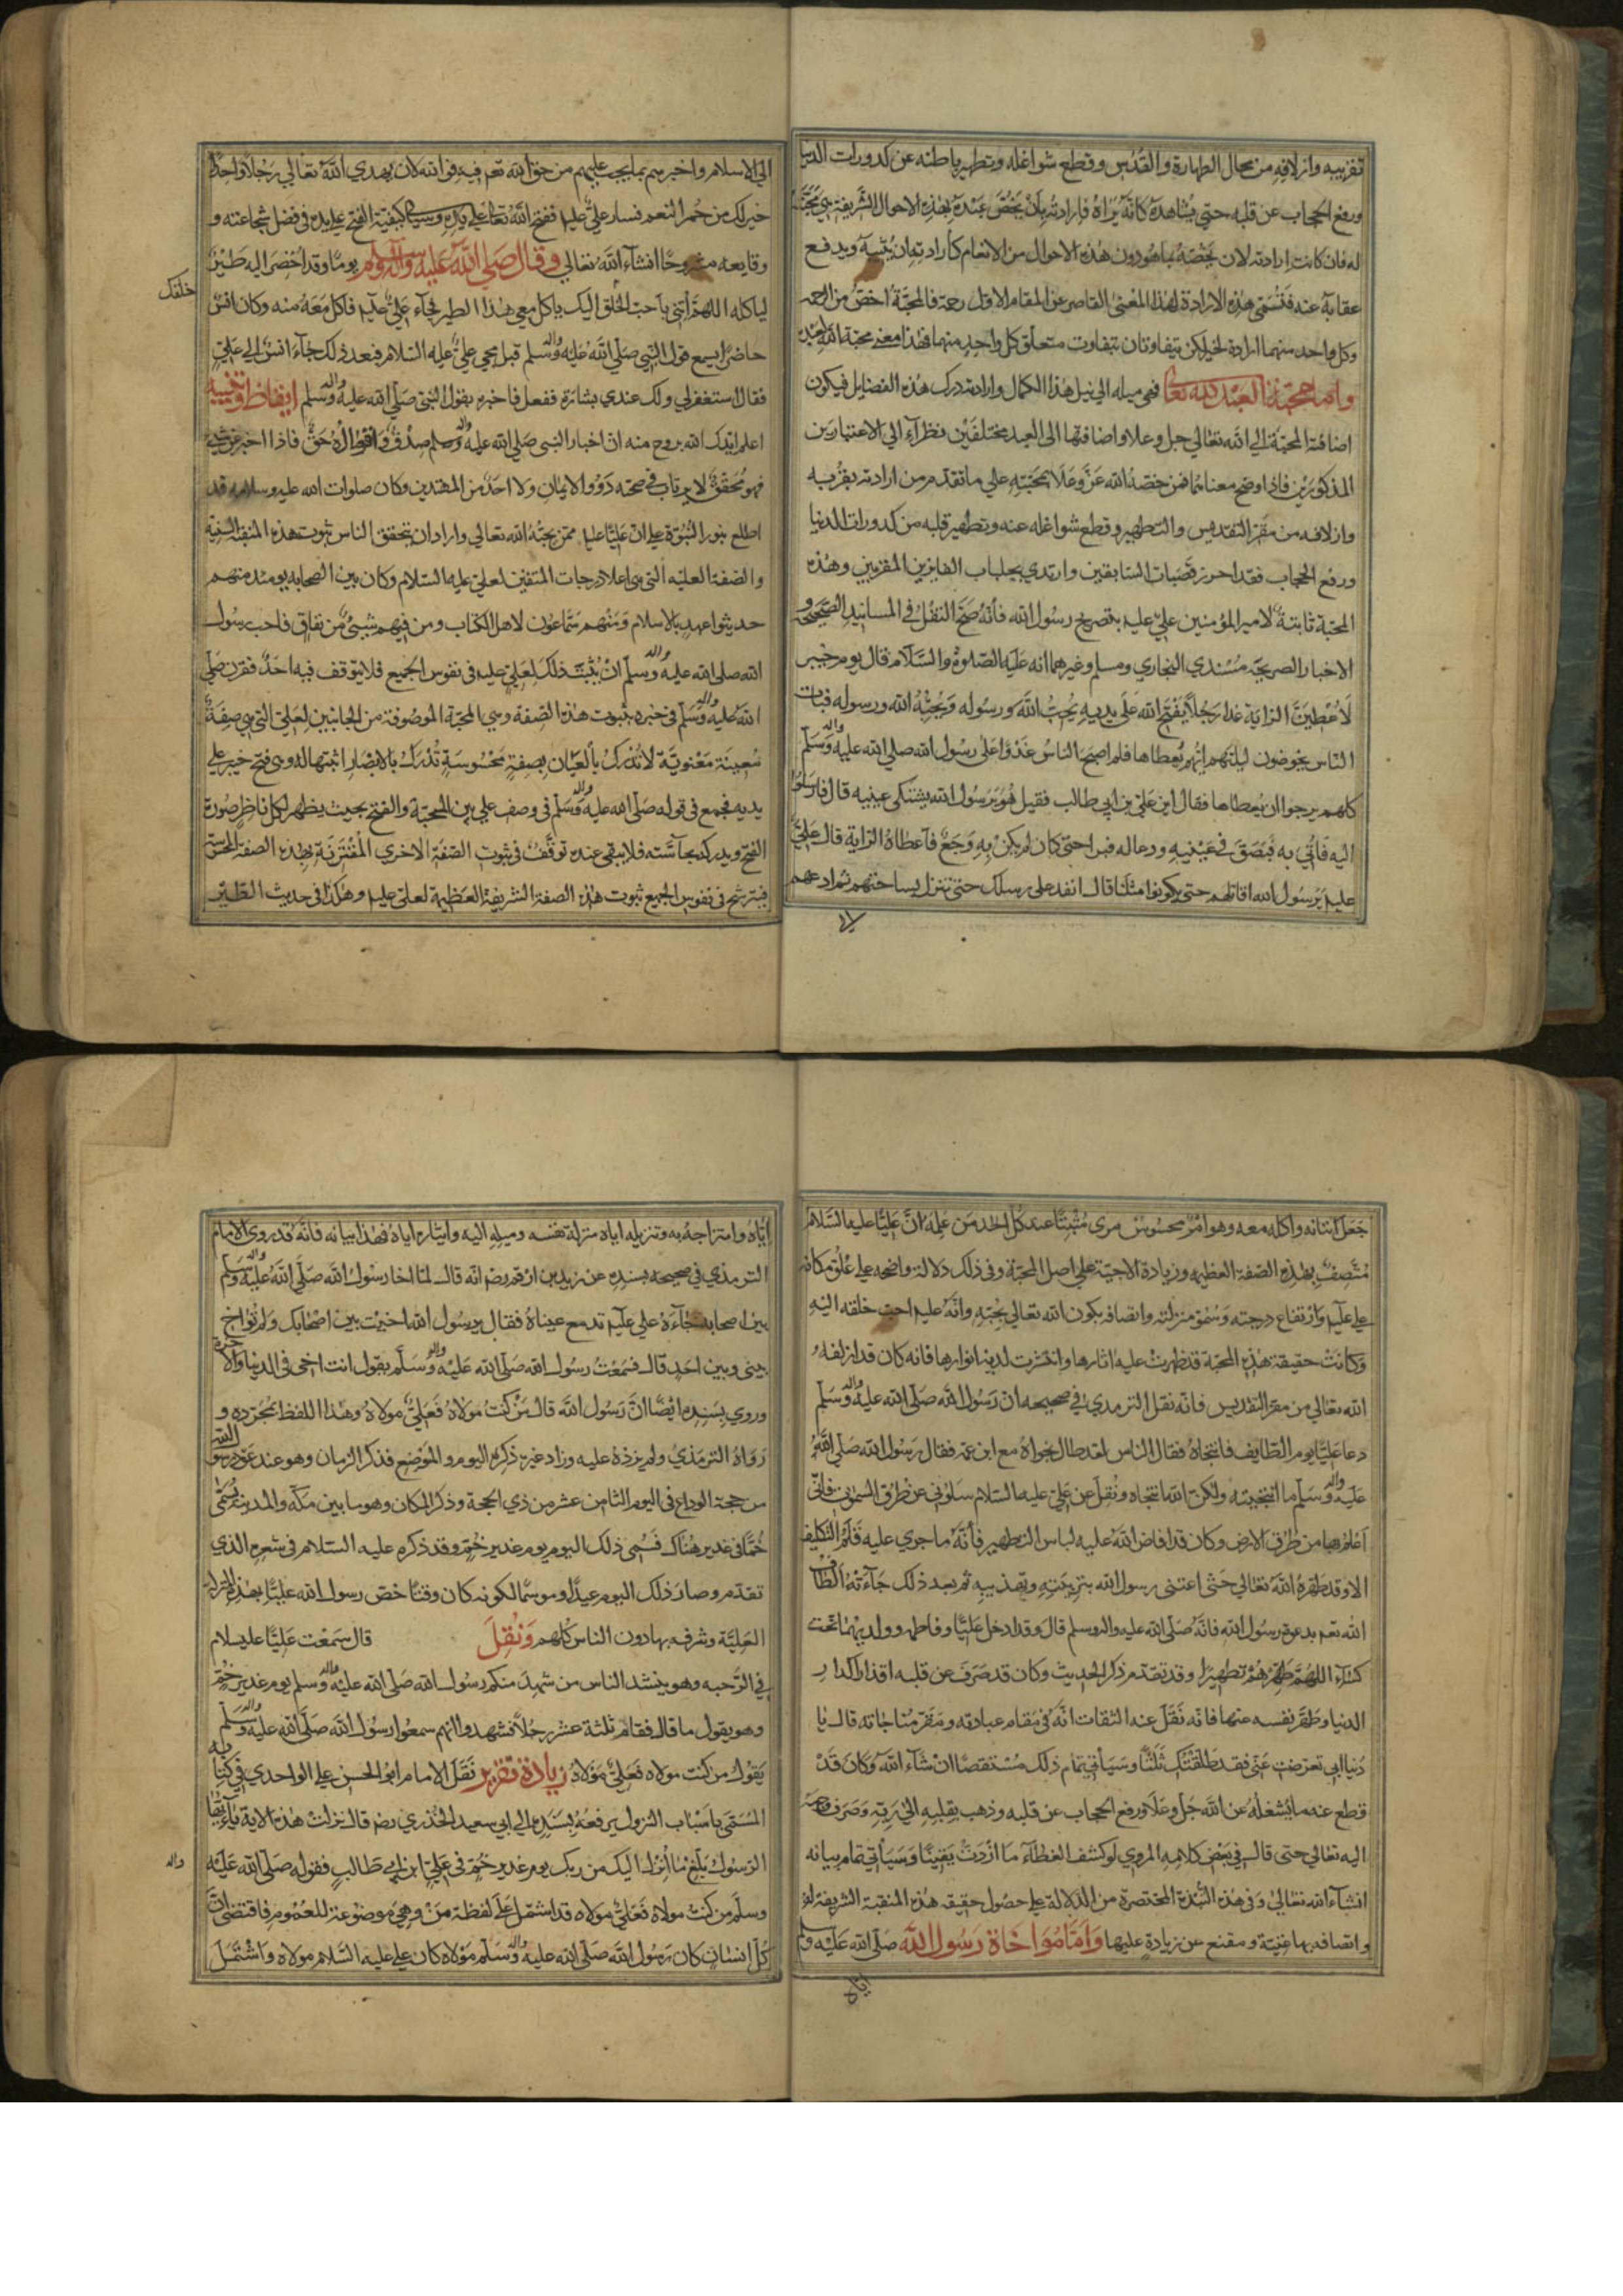 تقريبه وازلافه من محال الطهارة والقدس وقطع شواغله وتطهير باطنه عن كدورات الدنيا
ورفع الحجاب عن قلبه حتى يشاهده كانه يراه فارادته بان يخص عبده بهذه الاحوال الشريفة هي محبته
له فان كانت ارادته لان يخصه بما هو دون هذه الاحوال من الانعام كارادته ان يثيبه ويدفع
عقابه عنه فتسمى هذه الارادة لهذا المعنى القاصر عن المقام الاول رحمة فالمحبة اخص من الرحمة
وكل واحد منهما ارادة لخير لكن يتفاوتان بتفاوت متعلق كل واحد منهما فهذا معنى محبة الله لعبده
واما محبة العبد لله تعالى فهي ميله الى نيل هذا الكمال وارادته درك هذه الفضايل فيكون
اضافة المحبة الى الله تعالى جل وعلا واضافتها الى العبد مختلفين نظرا الى الاعتبارين
المذكورين فاذا وضح معناهما فمن خصه الله عز وعلا بمحبته على ما تقدم من ارادته بقربه
وازلافه من مقر التقديس والتطهير وقطع شواغله عنه وتطهير قلبه من كدورات الدنيا
ورفع الحجاب فقد احرز قصبات السابقين وارتدى بجلباب الفايزين المقربين وهذه
المحبة ثابتة لامير المؤمنين علي عليم بتصريح رسول الله فانه صح النقل في المسانيد الصحيحة و
الاخبار الصريحة مسندي البخاري ومسلم وغيرهما انه عليه الصلوة والسلام قال يوم خيبر
لاعطين الراية غدا رجلا يفتح الله على يديه يحب الله ورسوله ويحبه الله ورسوله فبات
الناس يخوضون ليلتهم ايهم يعطاها فلما اصبح الناس غدوا على رسول الله صلى الله عليه واله وسلم
كلهم يرجوا ان يعطاها فقال اين علي بن ابي طالب فقيل هو يرسول الله يشتكي عينيه قال فارسلوا
اليه فاتي به فبصق في عينيه ودعا له فبرا حتى كان لم يكن به وجع فاعطاه الراية قال علي
عليم يرسول الله اقاتلهم حتى يكونوا مثلنا قال انفد على رسلك حتى تنزل بساحتهم ثم ادعهم
الى
الى الاسلام واخبرهم بما يجب عليهم من حق الله تعم فيه فوالله لان يهدي الله تعالى رجلا واحدا
خير لك من حمر النعم فسار علي عليم ففتح الله تعالى على يده وسياتي كيفية الفتح على يده في فضل شجاعته و
وقايعه مشروحا انشاء الله تعالى وقال صلى الله عليه واله وسلم يوما وقد احضر اليه طير
لياكله اللهم اتني باحب الخلق اليك ياكل معي هذا الطير فجاء علي عليم فاكل معه منه وكان انس
خلقك
حاضرا يسمع قول النبي صلى الله عليه واله وسلم قبل مجي علي عليه السلام فبعد ذلك جاء انس الى علي
فقال استغفر لي ولك عندي بشارة ففعل فاخبره بقول النبي صلى الله عليه واله وسلم ايقاظ وتنبيه
اعلم ايدك الله بروح منه ان اخبار النبي صلى الله عليه واله وسلم صدق واقواله حق فاذا اخبر عن شي
فهو محقق لا يرتاب في صحته ذوو الايمان ولا احد من المهتدين وكان صلوات الله عليه وسلامه قد
اطلع بنور النبوة على ان عليا عليم ممن يحبه الله تعالى واراد ان يتحقق الناس ثبوت هذه المنقبة السنية
والصفة العلية التي هي اعلا درجات المتقين لعلي عليه السلام وكان بين الصحابة يومئذ منهم
حديثوا عهد بالاسلام ومنهم سماعون لاهل الكتاب ومن فيهم شيئ من نفاق فاحب رسول
الله صلى الله عليه واله وسلم ان يثبت ذلك لعلي عليم في نفوس الجميع فلا يتوقف فيه احد فقرن صلى
الله عليه واله وسلم في خبره بثبوت هذه الصفة وهي المحبة الموصوفة من الجانبين لعلي التي هي صفة
معينة معنوية لا تدرك بالعيان بصفة محسوسة تدرك بالابصار اثبتها له وهي فتح خيبر على
يديه فجمع في قوله صلى الله عليه واله وسلم في وصف علي بين المحبة والفتح بحيث يظهر لكل ناظر صورة
الفتح ويدركه بحاسته فلا يبقى عنده توقف في ثبوت الصفة الاخرى المقترنة بهذه الصفة المحسوسة
فيترسخ في نفوس الجميع ثبوت هذه الصفة الشريفة العظيمة لعلي عليم وهكذا في حديث الطير
جعل اتيانه واكله معه وهو امر محسوس مرى مثبتا عند كل احد من علمه ان عليا عليه السلام
متصف بهذه الصفة العظيمة وزيادة الاحبية على اصل المحبة وفي ذلك دلالة واضحة على علو مكانة
علي عليم وارتفاع درجته وسمو منزلته واتصافه بكون الله تعالى يحبه وانه عليم احب خلقه اليه
وكانت حقيقة هذه المحبة قد ظهرت عليه اثارها وانتشرت لديه انوارها فانه كان قد ازلفه
الله تعالى من مقر التقديس فانه نقل الترمذي في صحيحه ان رسول الله صلى الله عليه واله وسلم
دعا عليا يوم الطايف فانتجاه فقال الناس لقد طال نجواه مع ابن عمه فقال رسول الله صلى الله
عليه واله وسلم ما انتجيته ولكن الله انتجاه ونقل عن علي عليه السلام سلوني عن طرق السموت فاني
اعلم بها من طرق الارض وكان قد افاض الله عليه لباس التطهير فانه ما جرى عليه قلم التكليف
الا وقد طهره الله تعالى حتى اعتنى رسول الله بتربيته وتهذيبه ثم بعد ذلك جاءته الطاف
الله تعم بدعوة رسول الله فانه صلى الله عليه واله وسلم قال وقد ادخل عليا وفاطمه وولديهما تحت
كساء اللهم طهرهم تطهيرا وقد تقدم ذكر الحديث وكان قد صرف عن قلبه اقذار اكدار
الدنيا وطهر نفسه عنها فانه نقل عنه الثقات انه في مقام عبادته ومقر مناجاته قال يا
دنيا ابي تعرضت عني فقد طلقتك ثلثا وسياتي تمام ذلك مستقصا ان شاء الله وكان قد
قطع عنه ما يشغله عن الله جل وعلا ورفع الحجاب عن قلبه وذهب بقلبه الى ربه وصرف
اليه تعالى حتى قال في بعض كلامه المروي لو كشف الغطاء ما ازددت يقينا وسياتي تمام بيانه
انشاء الله تعالى وفي هذه النبذة المختصرة من الدلالة على حصول حقيقة هذه المنقبة الشريفة له
واتصافه بها غنية ومقنع عن زيادة عليها واما مواخاة رسول الله صلى الله عليه وسلم
اياه
اياه وامتزاجه به وتنزيله اياه منزلة نفسه وميله اليه وايثاره اياه فهذا بيانه فانه قد روى الامام
الترمذي في صحيحه بسنده عن زيد بن ارقم رضه انه قال لما اخا رسول الله صلى الله عليه واله وسلم
بين اصحابه جاءه علي عليم تدمع عيناه فقال يرسول الله اخيت بين اصحابك ولم تواخ
بيني وبين احد قال فسمعت رسول الله صلى الله عليه واله وسلم يقول انت اخي في الدنيا والاخرة
وروي بسنده ايضا ان رسول الله قال من كنت مولاه فعلي مولاه وهذا اللفظ بمجرده و
رواه الترمذي ولم يزد عليه وزاد غيره ذكر اليوم والموضع فذكر الزمان وهو عند عود رسول الله
من حجة الوداع في اليوم الثامن عشر من ذي الحجة وذكر المكان وهو ما بين مكة والمدينة يسمى
خما في غدير هناك فسمي ذلك اليوم يوم غدير خم وقد ذكره عليه السلام في شعره الذي
تقدم وصار ذلك اليوم عيدا وموسما لكونه كان وقتا خص رسول الله عليا بهذه المنزلة
العلية وشرفه بها دون الناس كلهم ونقل قال سمعت عليا عليه السلام
في الرحبه وهو ينشد الناس من شهد منكم رسول الله صلى الله عليه واله وسلم يوم غدير خم
وهو يقول ما قال فقام ثلثة عشر رجلا فشهدوا انهم سمعوا رسول الله صلى الله عليه واله وسلم
يقول من كنت مولاه فعلي مولاه زيادة تقرير نقل الامام ابو الحسن علي الواحدي في كتابه
المسمى باسباب النزول يرفعه بسنده الى ابي سعيد الخذري رضه قال نزلت هذه الاية ياءيها
الرسول بلغ ما انزل اليك من ربك يوم غدير خم في علي ابن ابي طالب فقوله صلى الله عليه
واله
وسلم من كنت مولاه فعلي مولاه قد اشتمل على لفظة من وهي موضوعة للعموم فاقتضى ان
كل انسان كان رسول الله صلى الله عليه واله وسلم مولاه كان علي عليه السلام مولاه واشتمل